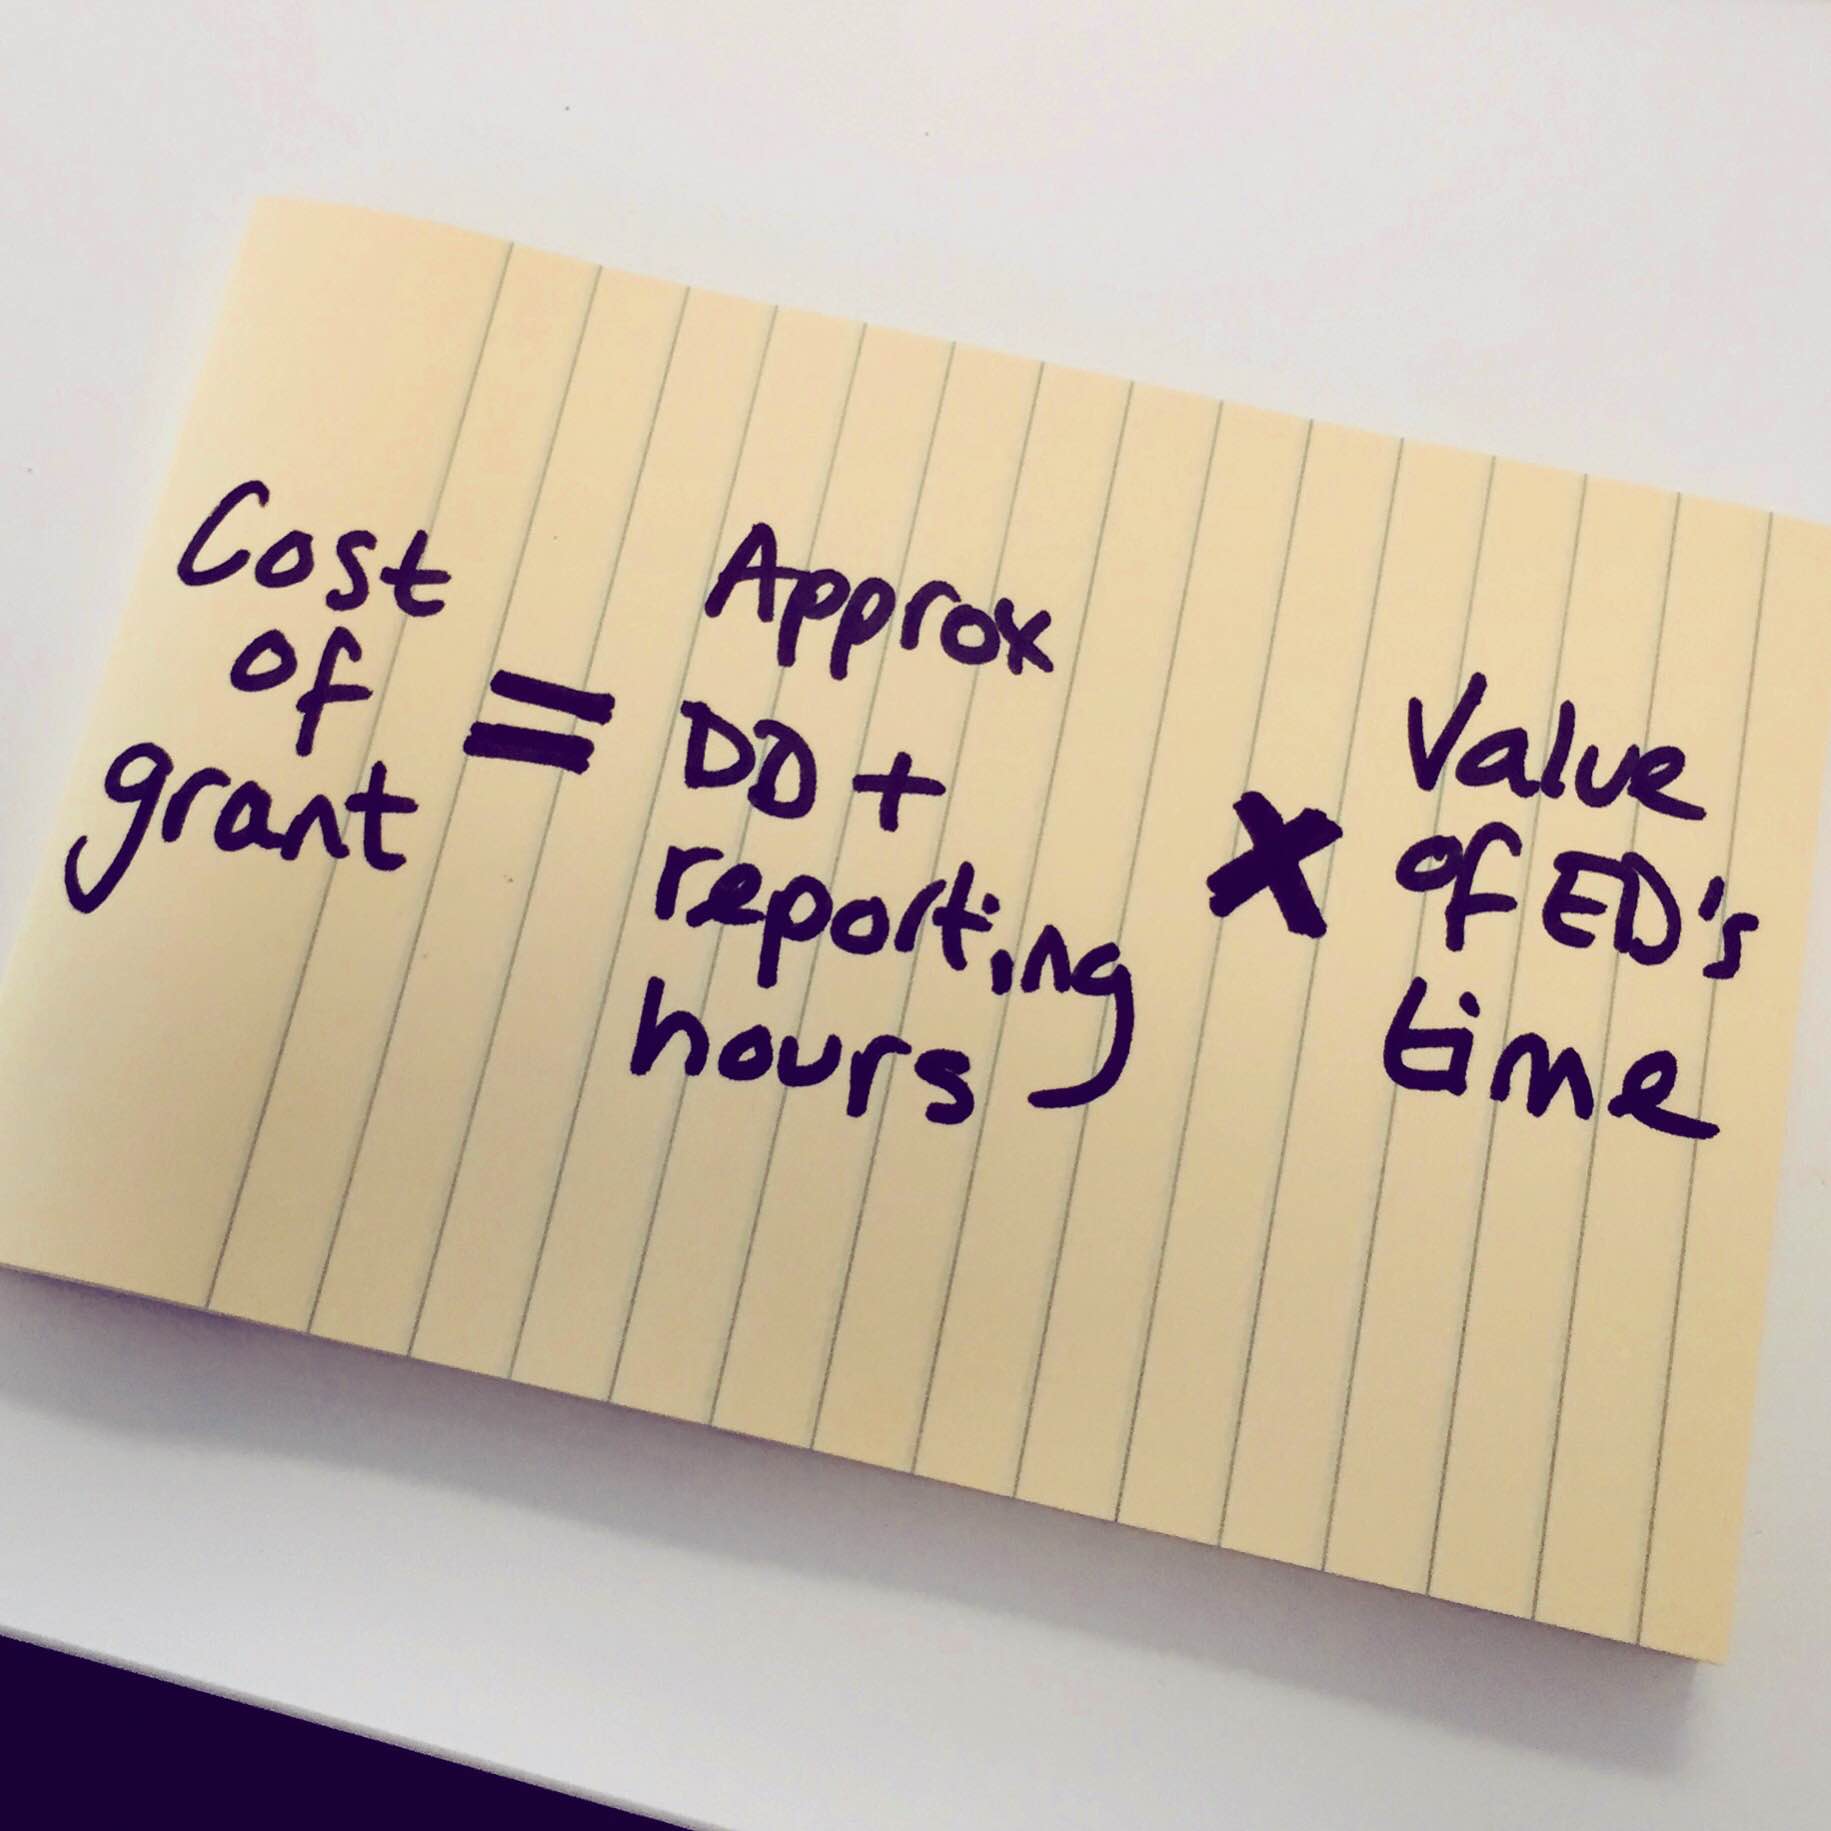 Cost
of
grant
=
Approx
DD +
reporting
hours
x
Value
of ED's
time